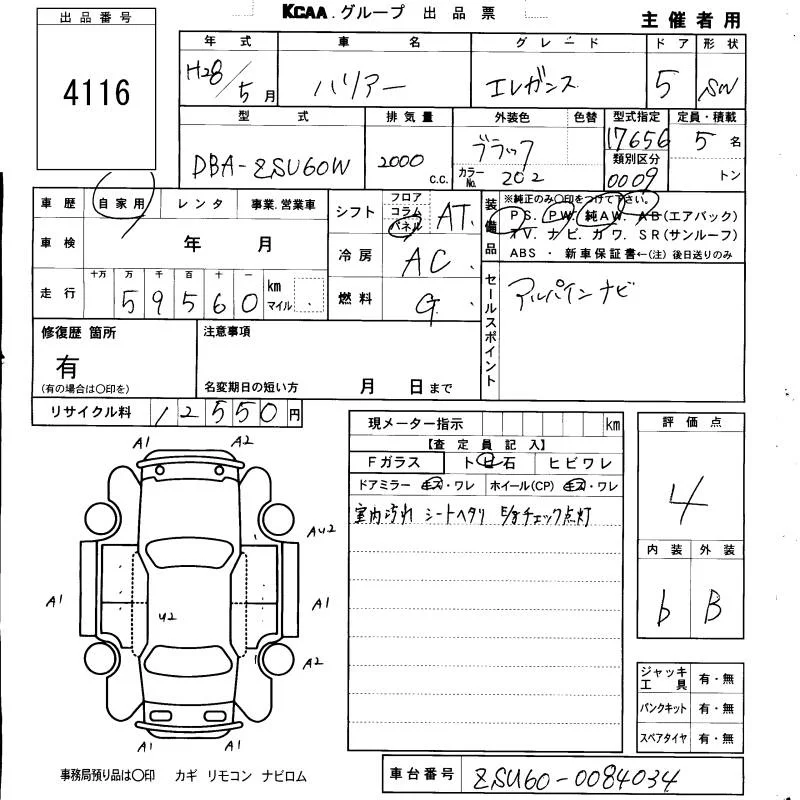 KCAA.グループ 出品票
主催者用
出品番号
4116
年式 車名 グレード ドア 形状
H28/5月 ハリアー エレガンス 5 SW
型式 排気量 外装色 色替 型式指定 定員・積載
DBA-ZSU60W 2000 c.c. ブラック 17656 5名
カラーNo. 202 類別区分 0009 トン
車歴 自家用 レンタ 事業.営業車
シフト フロア コラム パネル AT
装備品 ※純正のみ〇印をつけて下さい。
PS. PW. 純AW. AB(エアバッグ)
TV. ナビ. カワ. SR(サンルーフ)
ABS・新車保証書←(注)後日送りのみ
車検 年 月
冷房 AC
走行 十万 万 千 百 十 一 km マイル
59560
燃料 G
セールスポイント
アルパインナビ
修復歴 箇所
有
(有の場合は〇印を)
注意事項
名変期日の短い方 月 日まで
リサイクル料 12550円
現メーター指示 km
【査定員記入】
Fガラス ト ビ 石 ヒビワレ
ドアミラー キズ・ワレ ホイール(CP) キズ・ワレ
室内汚れ シートヘタリ E/gチェック点灯
評価点
4
内装 外装
b B
A1 A2
AU2
A1 U2 A1
A2
A1 A1
ジャッキ工具 有・無
パンクキット 有・無
スペアタイヤ 有・無
事務局預り品は〇印 カギ リモコン ナビロム
車台番号 ZSU60-0084034